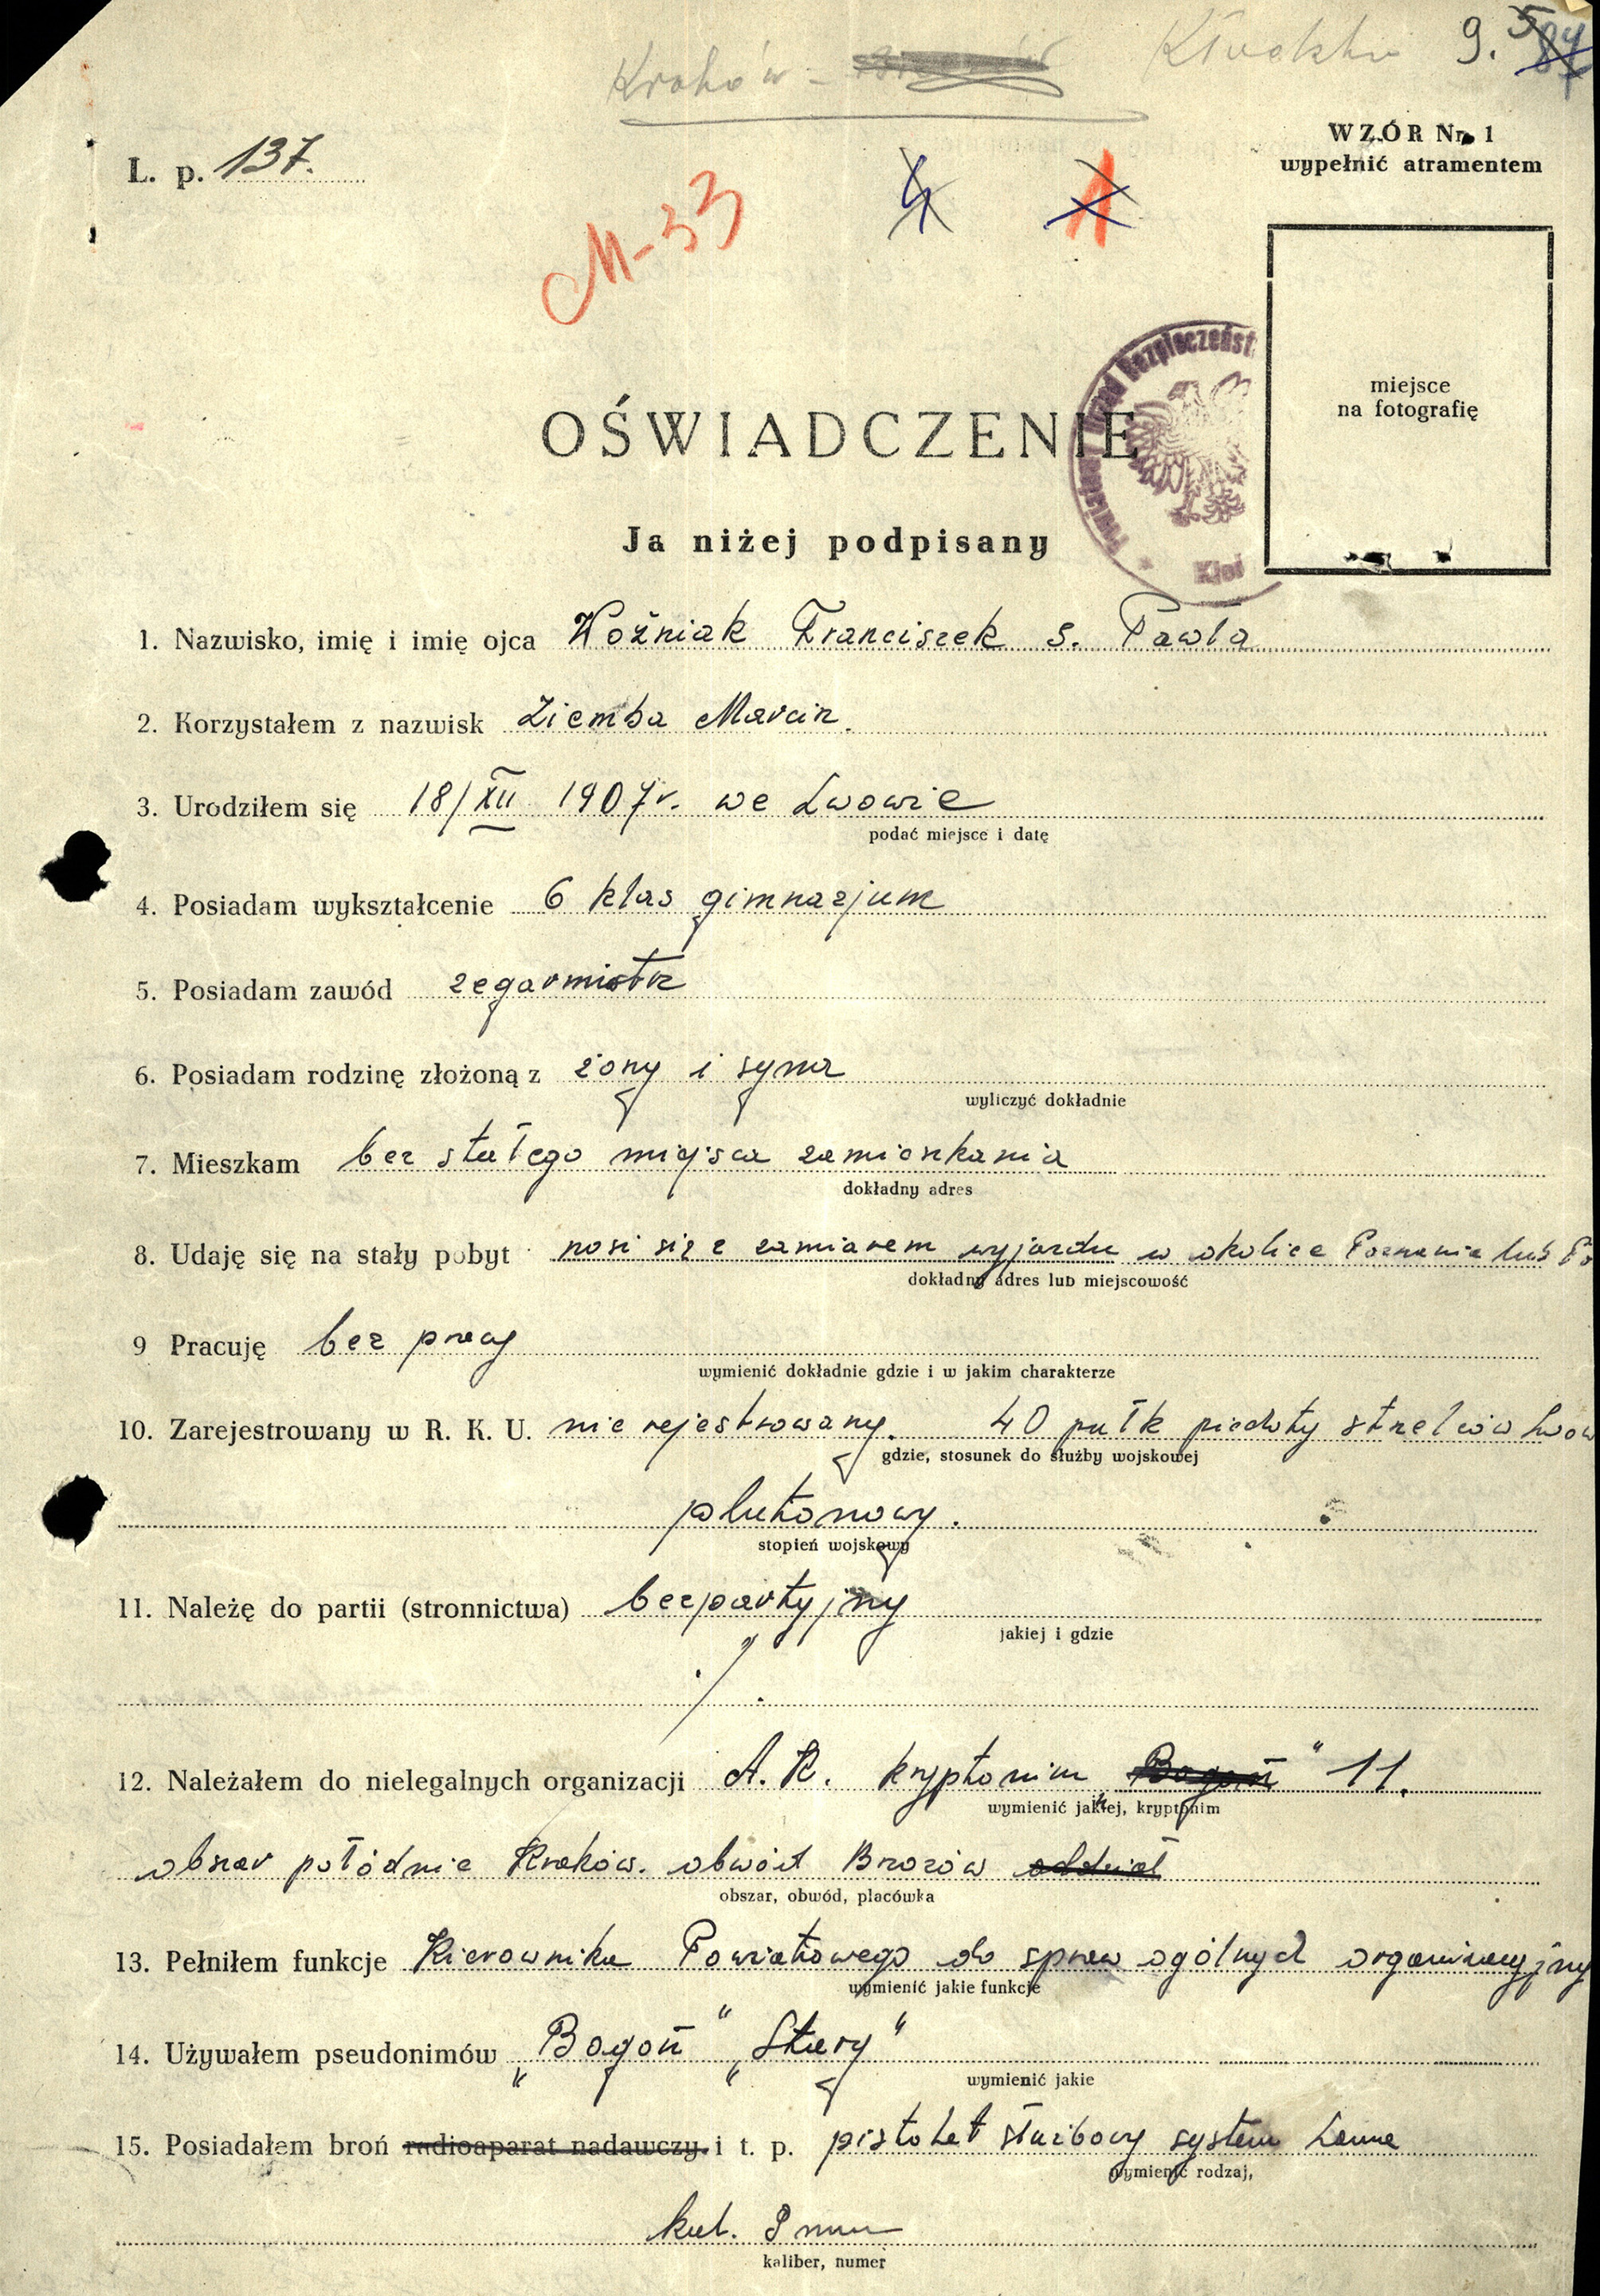 Kraków -
9.
L. p. 137.
WZÓR Nr. 1
wypełnić atramentem
M-33
4 1
miejsce
na fotografię
OŚWIADCZENIE
Urząd Bezpieczeńst
Ja niżej podpisany
1. Nazwisko, imię i imię ojca Woźniak Franciszek s. Pawła
2. Korzystałem z nazwisk Ziemba Marcin.
3. Urodziłem się 18/XII 1907r. we Lwowie
podać miejsce i datę
4. Posiadam wykształcenie 6 klas gimnazjum
5. Posiadam zawód zegarmistrz
6. Posiadam rodzinę złożoną z żony i syna
wyliczyć dokładnie
7. Mieszkam bez stałego miejsca zamieszkania
dokładny adres
8. Udaję się na stały pobyt nosi się z zamiarem wyjazdu w okolice Poznania lub
dokładny adres lub miejscowość
9 Pracuję bez pracy
wymienić dokładnie gdzie i w jakim charakterze
10. Zarejestrowany w R. K. U. nie rejestrowany. 40 pułk piechoty strzelców Lwow
gdzie, stosunek do służby wojskowej
plutonowy.
stopień wojskowy
11. Należę do partii (stronnictwa) bezpartyjny
jakiej i gdzie
12. Należałem do nielegalnych organizacji A.K. kryptonim Bogoń" 11.
wymienić jakiej, kryptonim
obszar połódnie Kraków. obwód Brzozów oddział
obszar, obwód, placówka
13. Pełniłem funkcje Kierownika Powiatowego do spraw ogólnych organizacyjny
wymienić jakie funkcje
14. Używałem pseudonimów „Bogoń" „Stary"
wymienić jakie
15. Posiadałem broń radioaparat nadawczy i t. p. pistolet służbowy system
wymienić rodzaj,
kal. 9 mm
kaliber, numer